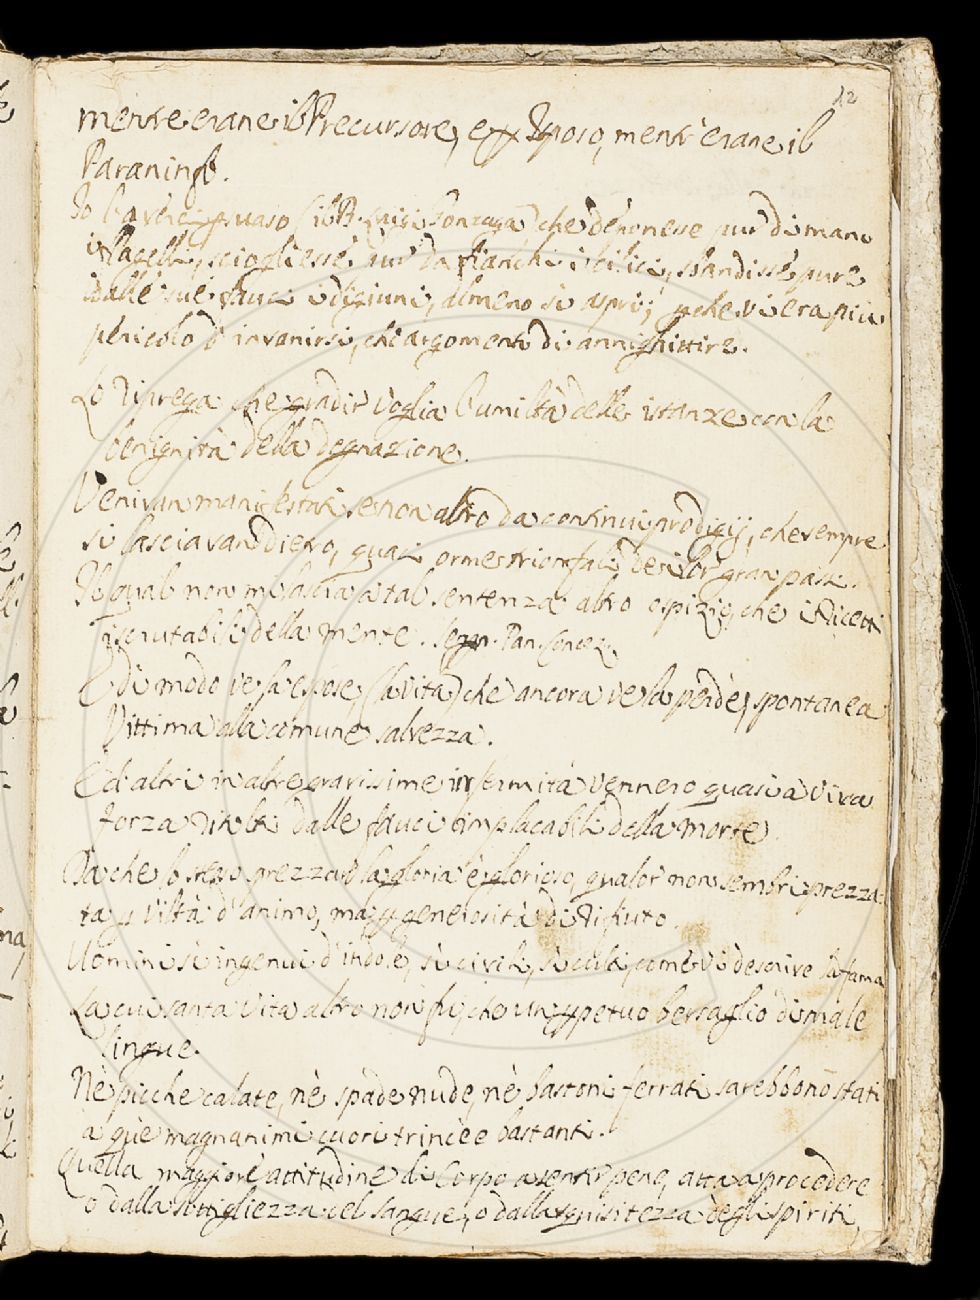 12
mentre erane il Precursore, e p Isposo, mentr'erane il
Paraninfo.
Io l'avrei suaso (il B. Luigi Gonzaga) che deponesse pur di mano
i flagelli, sciogliesse pur da fianchi i cilici, sbandisse pure
dalle sue fauci i digiuni, almeno sì aspri; p che vi era più
pericolo d' invanirsi, che argomento di annighittire.
Lo riprega che gradir voglia l'umiltà delle istanze con la
benignità della degnazione.
Venivan manifestati se non altro da continui prodigij, che sempre
si lasciavan dietro, quasi orme trionfali de i lor gran passi.
Il qual non mi lascia a tal sentenza altro ospizio, che i ricetti
iscrutabili della mente. Segn. Pan. Concez.
E di modo ve la espose (la vita) che ancora ve la perdè, spontanea
Vittima alla comune salvezza.
Ed altri in altre gravissime infermità vennero quasi a viva
forza ritolti dalle fauci implacabili della morte.
Da che lo stesso sprezzar la gloria è glorioso, qualor non sembri sprezza-
ta p viltà d'animo, ma p generosità di rifiuto.
Uomini sì ingenui d'indole, sì civili, sì culti, come vi descrive la fama
La cui santa vita altro non fù, che un ppetuo bersaglio di male
lingue.
Nè picche calate, nè spade nude, nè bastoni ferrati sarebbono stati
a que' magnanimi cuori trincee bastanti.
Quella maggiore attitudine di Corpo a sentir pene, atta a procedere
o dalla sottigliezza del sangue, o dalla squisitezza degli spiriti,